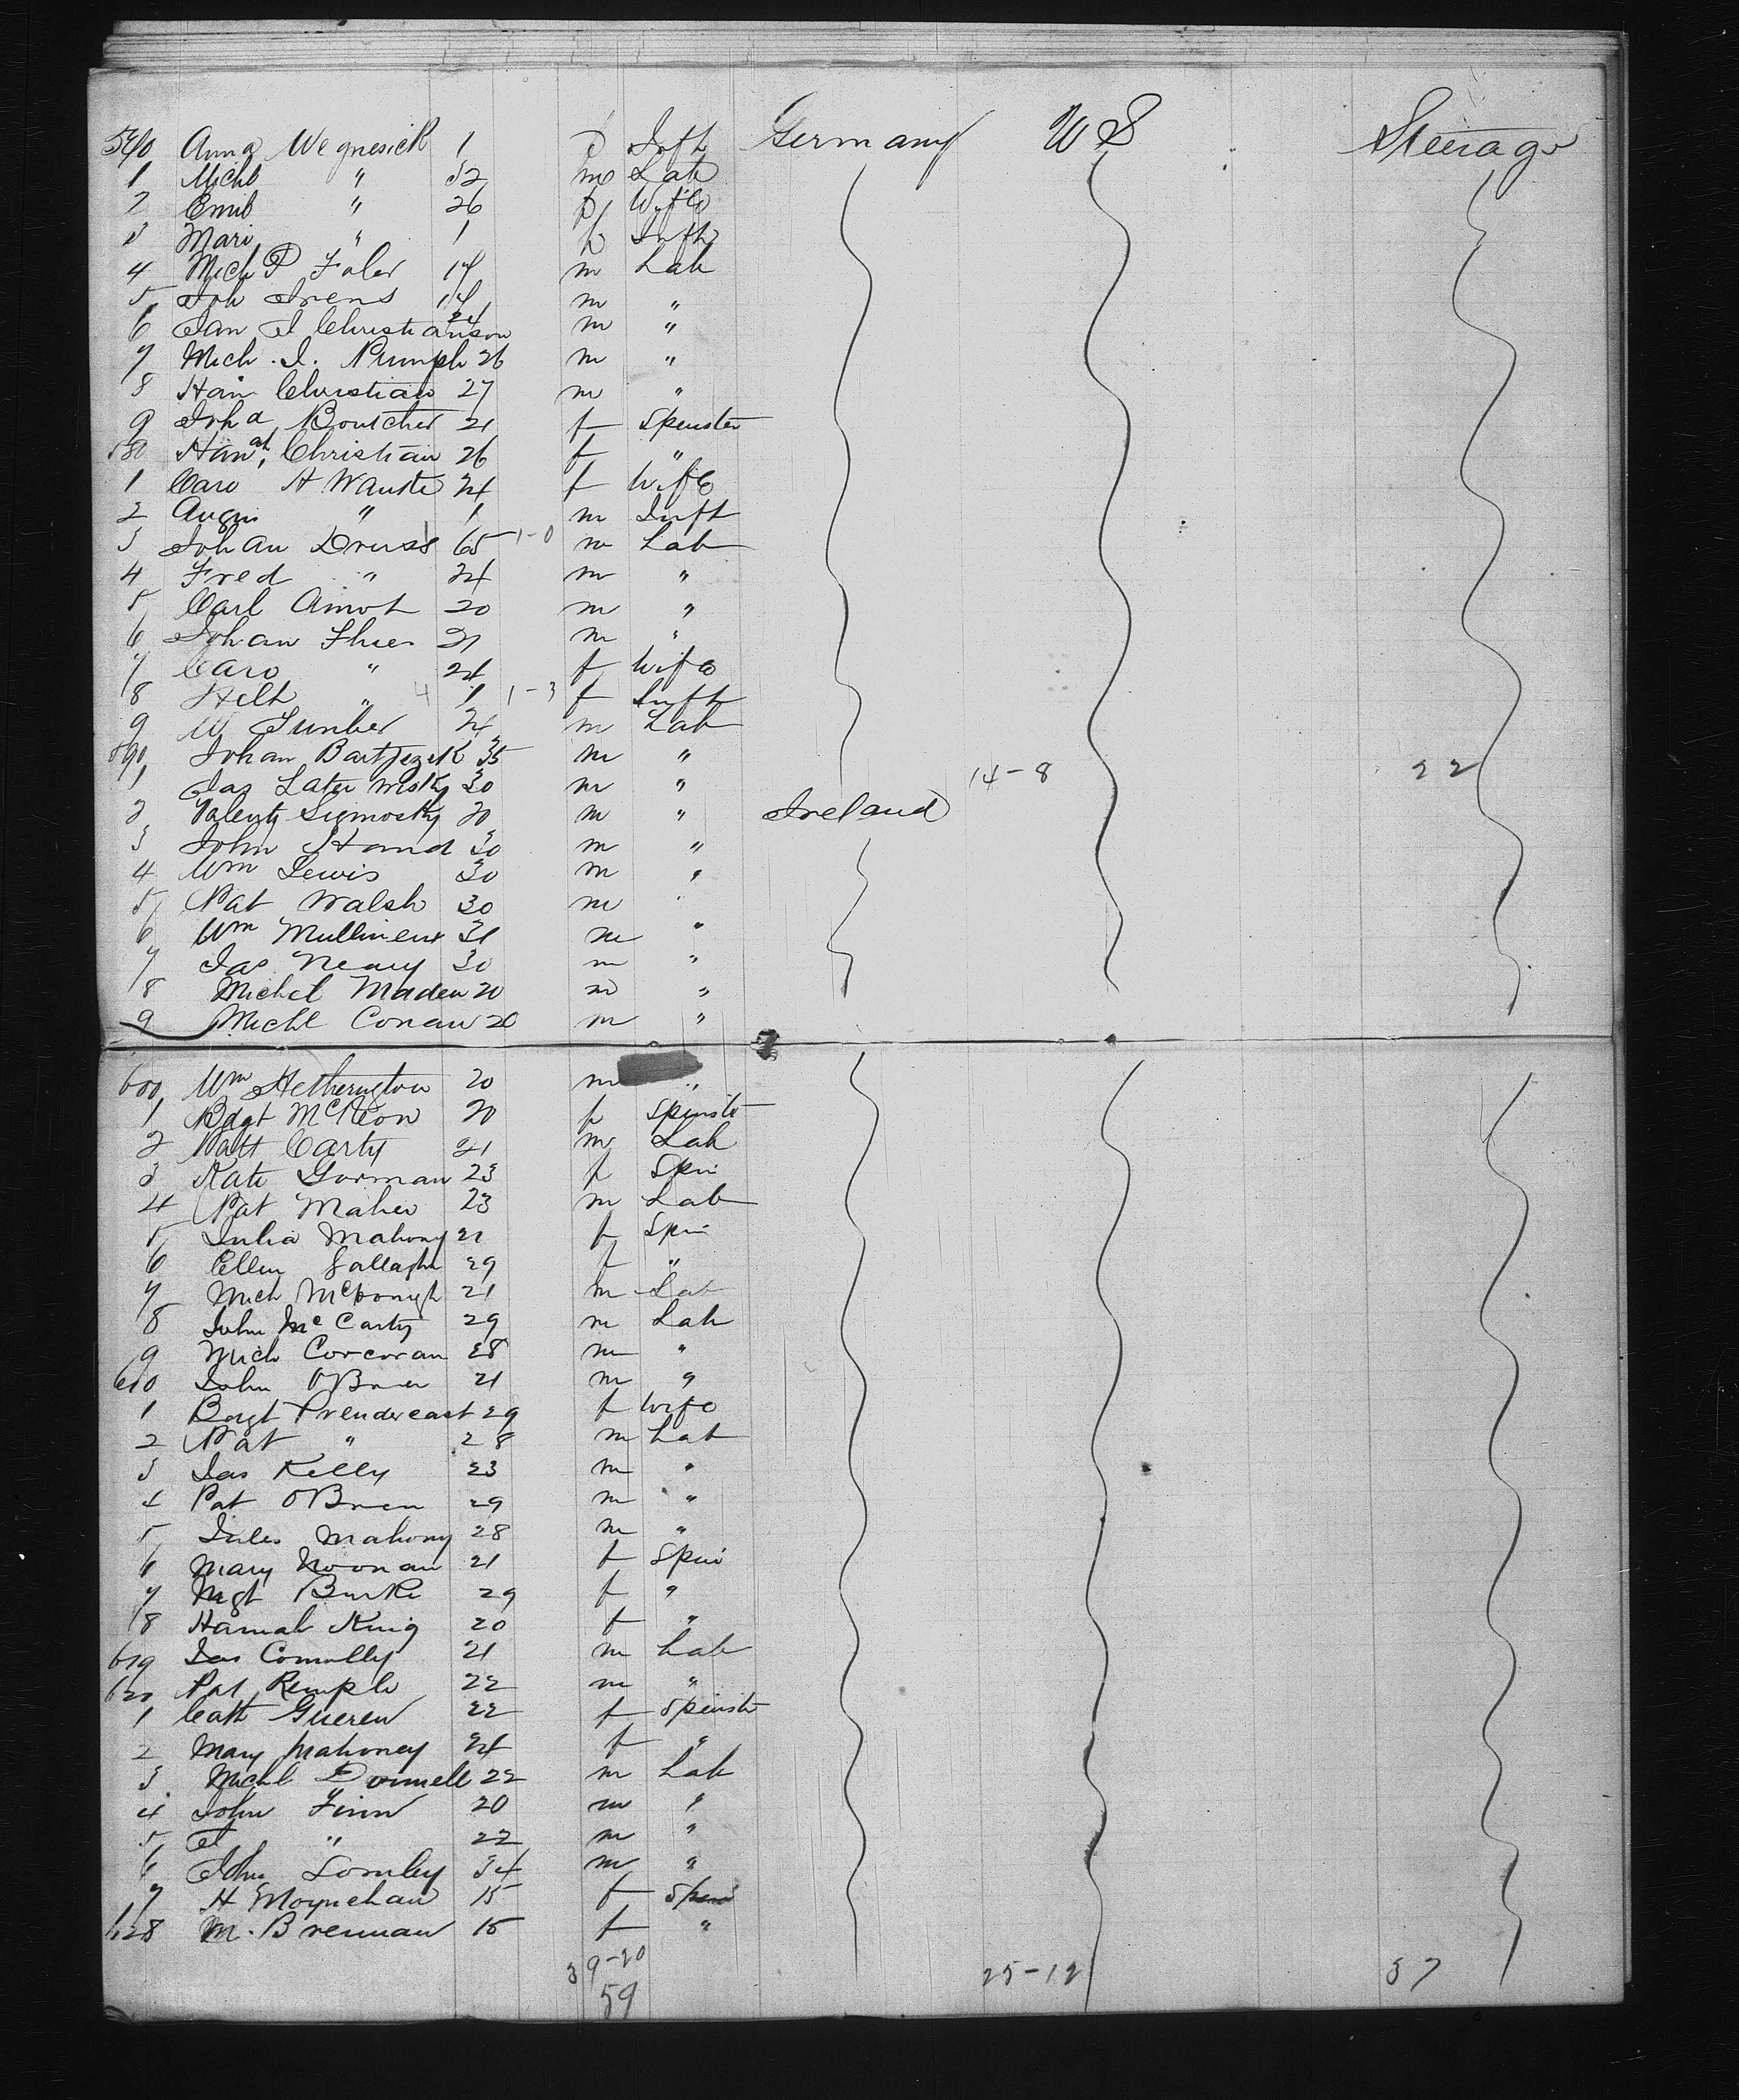 570 Anna Wegnesick 1 f Inft Germany U S Steerage
1 Michl " 32 m Lab
2 Emil " 26 f Wife
3 Mari " 1 f Inft
4 Mich P Faler 17 m Lab
5 Joh Irens 14 m "
6 Jan J Christianson 24 m "
7 Mich. I. Prumph 26 m "
8 Han Christian 27 m "
9 Joha Boutcher 21 f Spinster
580 Hanah Christian 26 f "
1 Caro A Wauste 24 f Wife
2 Augus " 1 m Inft
3 Johan Druss 65 1-0 m Lab
4 Fred " 24 m "
5 Carl Amot 20 m "
6 Johan Thies 21 m "
7 Caro " 24 f Wife
8 Helt " 4 1 1-3 f Inft
9 W Tunber 24 m Lab
590 Johan Bartjezek 35 m "
1 Jas Latermsky 30 m " 14-8 22
2 Valenty Sigmosky 20 m " Ireland
3 John Hand 30 m "
4 Wm Lewis 30 m "
5 Pat Walsh 30 m "
6 Wm Mullineux 31 m "
7 Jas Neary 30 m "
8 Michel Maden 20 m "
9 Michl Conan 20 m "
600 Wm Hetherington 20 m "
1 Bdgt McKeon 20 f Spinst
2 Patt Carty 21 m Lab
3 Kate Gorman 23 f Spin
4 Pat Maher 23 m Lab
5 Julia Mahony 21 f Spin
6 Ellen Gallaghr 29 f "
7 Mich McDonugh 21 m Lab
8 John McCarty 29 m Lab
9 Mich Corcoran 28 m "
610 John OBrien 21 m "
1 Bergt Prendereast 29 f Wife
2 Pat " 28 m Lab
3 Jas Kelly 23 m "
4 Pat OBrien 29 m "
5 Jules Mahony 28 m "
6 Mary Noonan 21 f Spin
7 Mgt Burke 29 f "
8 Hannah King 20 f "
619 Jas Connolly 21 m Lab
620 Pat Remple 22 m "
1 Cath Gueren 22 f Spinst
2 Mary Mahoney 24 f "
3 Michl Donnell 22 m Lab
4 John Finn 20 m "
5 " 22 m "
6 John Lomley 34 m "
7 H Moynehan 15 f Spin
628 M. Brennan 15 f "
39-20 25-12 37
59